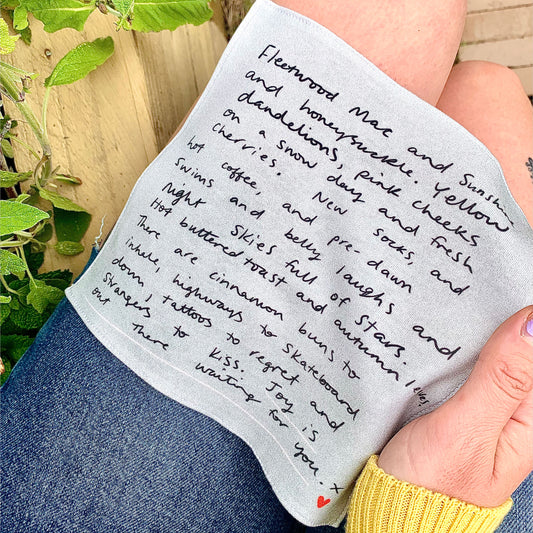 Fleetwood Mac and Sunshine
and honeysuckle. Yellow
dandelions, pink cheeks
on a snow day and fresh
cherries. New socks, and
hot coffee, and pre-dawn
swims and belly laughs and
Night skies full of stars.
Hot buttered toast and autumn leaves.
There are cinnamon buns to
inhale, highways to skateboard
down, tattoos to regret and
strangers to kiss. Joy is
out there waiting for you. x